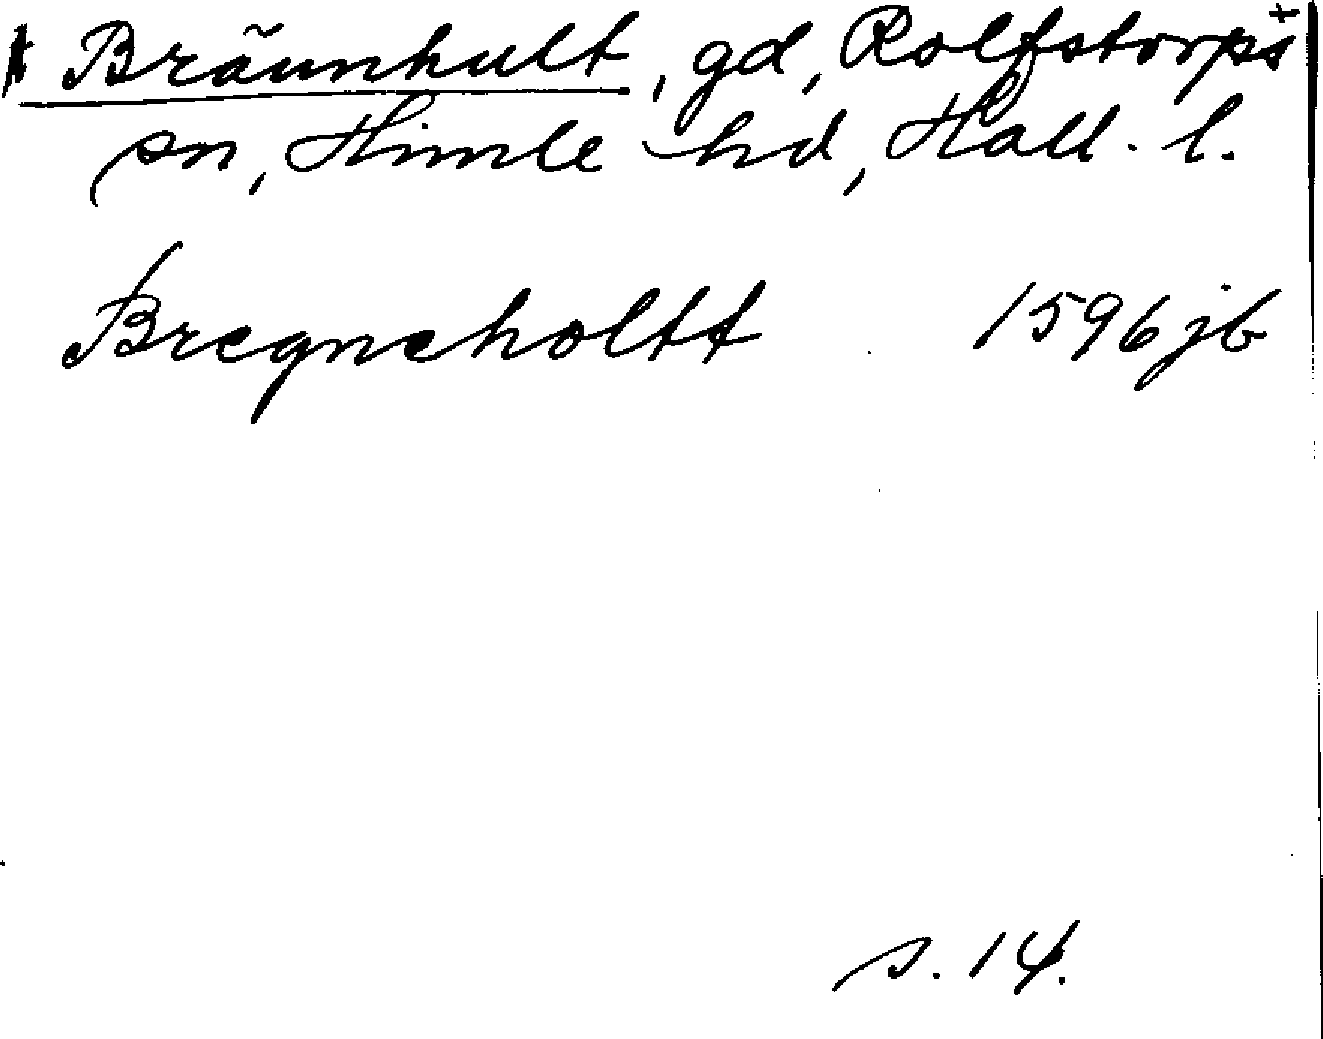 Bräunhult, gd, Rolfstorps
sn, Himle hd, Hall. l.
Bregneholtt 1596 jb
s. 14.